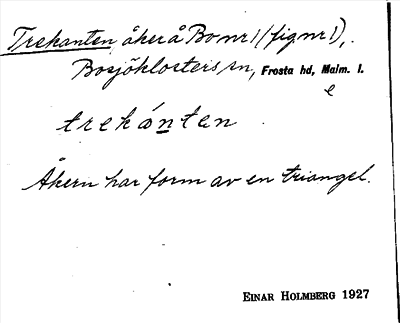 Trekanten, åker å Bo nr 1 (fig nr 1),
Bosjöklosters sn, Frosta hd, Malm. l.
e
trekánten
Åkern har form av en triangel.
EINAR HOLMBERG 1927